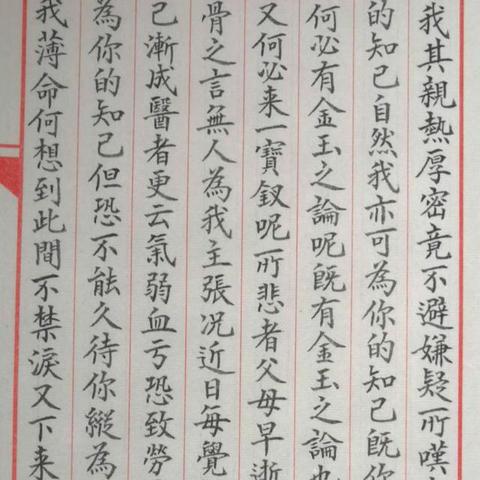 我其親熱厚密竟不避嫌疑所嘆
的知己自然我亦可為你的知己既你
何必有金玉之論呢既有金玉之論也
又何必来一寶釵呢所悲者父母早逝
骨之言無人為我主張况近日每覺
己漸成醫者更云氣弱血亏恐致勞
為你的知己但恐不能久待你縱為
我薄命何想到此間不禁淚又下来